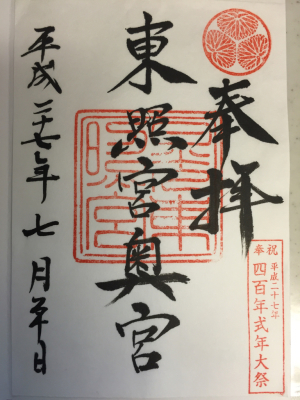 奉拝
奉祝
平成二十七年
四百年式年大祭
東照宮奥宮
平成二十七年七月日